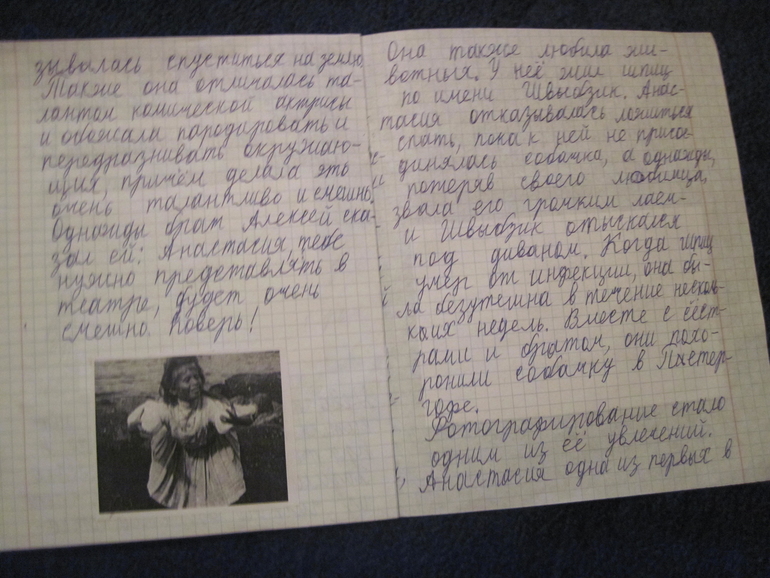 зывалась спуститься на землю.
Также она отличалась та-
лантом комической актрисы
и обожала пародировать и
передразнивать окружаю-
щих, причём делала это
очень талантливо и смешно.
Однажды брат Алексей ска-
зал ей: Анастасия, тебе
нужно представлять в
театре, будет очень
смешно. Поверь!
Она также любила жи-
вотных. У неё жил шпиц
по имени Швыбзик. Анас-
тасия отказывалась ложиться
спать, пока к ней не присо-
динялась собачка, а однажды,
потеряв своего любимца,
звала его громким лаем-
и Швыбзик отыскался
под диваном. Когда шпиц
умер от инфекции, она бы-
ла безутешна в течение несколь-
ких недель. Вместе с сёст-
рами и братом, они похо-
ронили собачку в Петер-
гофе.
Фотографирование стало
одним из её увлечений.
Анастасия одна из первых в